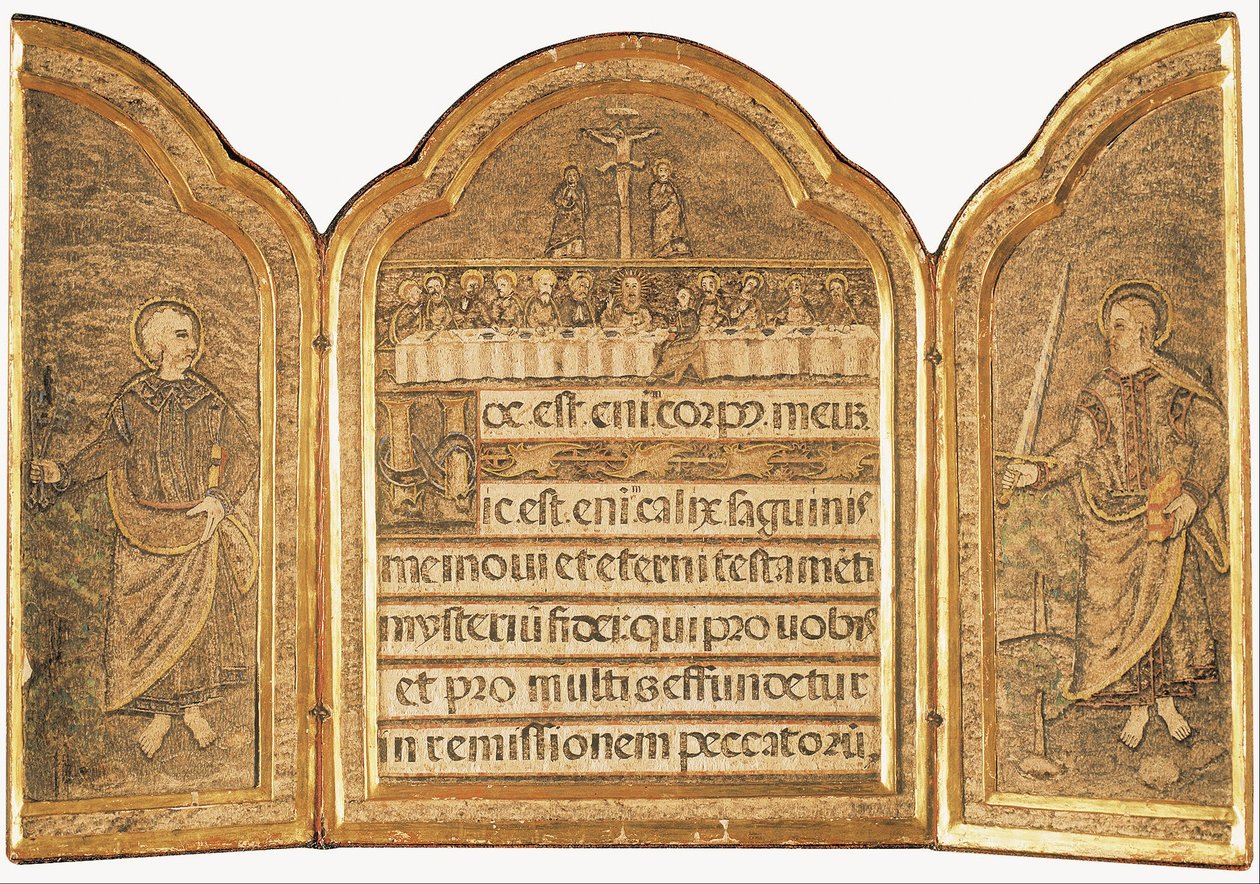 Hoc. est. eniᵐ. corpꝰ. meuz
Hic. est. eniᵐ. calix. saguinis
mei novi et eterni testamēti
mysteriū fidei: qui pro uobis
et pro multis effundetur
in remissionem peccatorū.